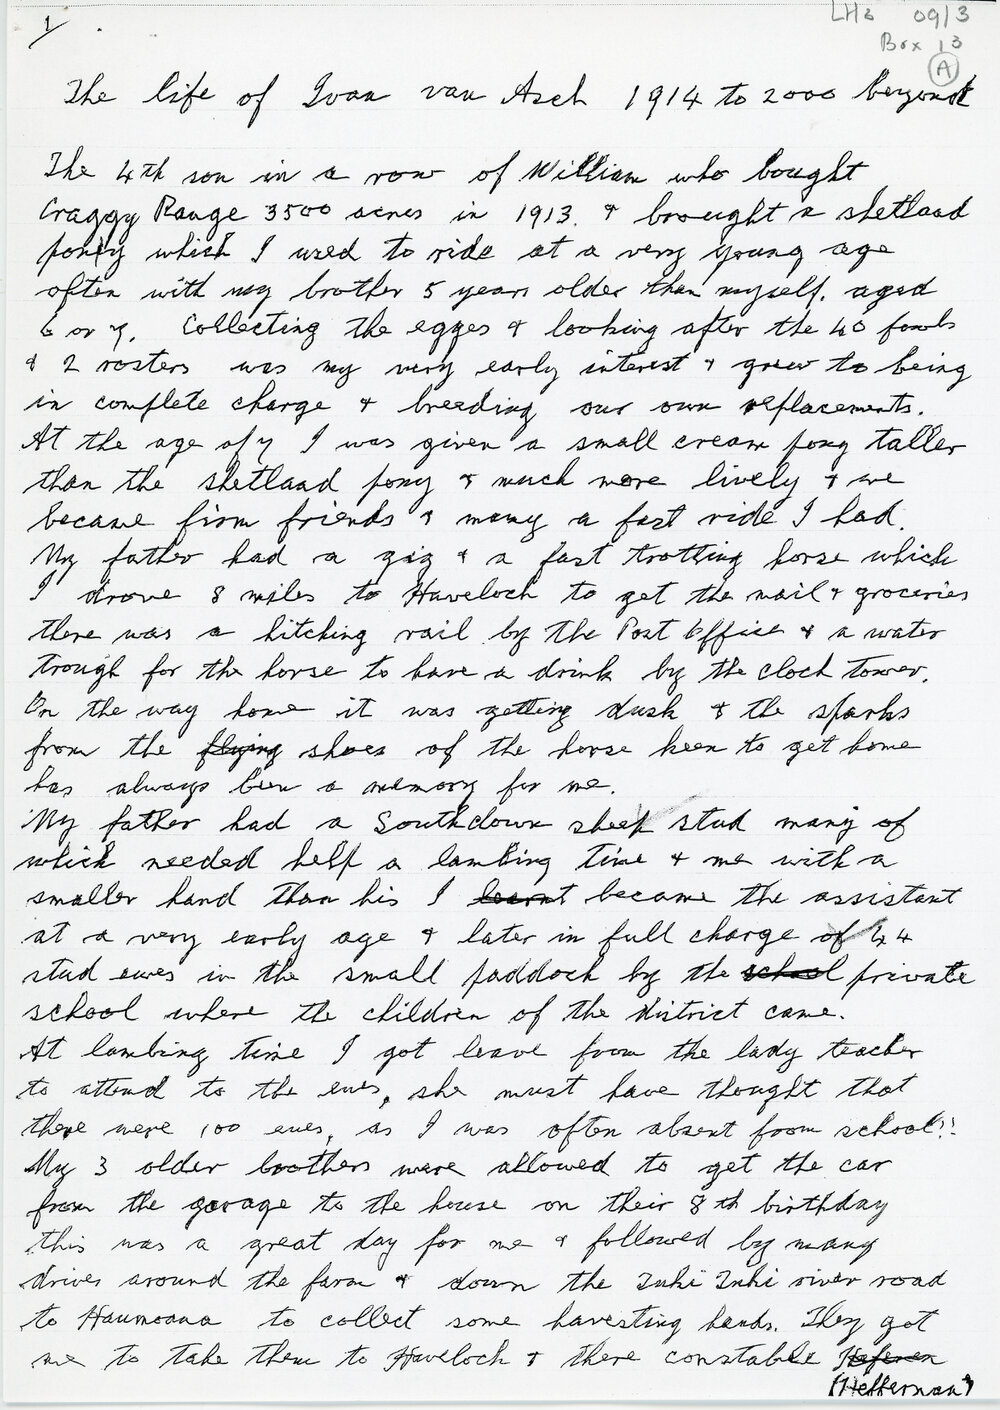 1/
LH3 09/3
Box 13
A
The life of Ivan van Asch 1914 to 2000 beyond
The 4th son in a row of William who bought
Craggy Range 3500 acres in 1913. & brought a shetland
pony which I used to ride at a very young age
often with my brother 5 years older than myself. aged
6 or 7. Collecting the egges & looking after the 40 fowls
& 2 rosters was my very early interest & grew to being
in complete charge & breeding our own replacements.
At the age of 7 I was given a small cream pony taller
than the shetland pony & much more lively & we
became firm friends & many a fast ride I had.
My father had a gig & a fast trotting horse which
I drove 8 miles to Havelock to get the mail & groceries
there was a hitching rail by the Post Office & a water
trough for the horse to have a drink by the clock tower.
On the way home it was getting dusk & the sparks
from the flying shoes of the horse keen to get home
has always been a memory for me.
My father had a Southdown sheep stud many of
which needed help a lambing time & me with a
smaller hand than his I learnt became the assistant
at a very early age & later in full charge of 44
stud ewes in the small paddock by the school private
school where the children of the district came.
At lambing time I got leave from the lady teacher
to attend to the ewes, she must have thought that
there were 100 ewes, as I was often absent from school!!
My 3 older brothers were allowed to get the car
from the garage to the house on their 8th birthday
this was a great day for me & followed by many
drives around the farm & down the Tuki Tuki river road
to Haumoana to collect some havesting hands. They got
me to take them to Havelock & there constable Heferen
(Hefferman)